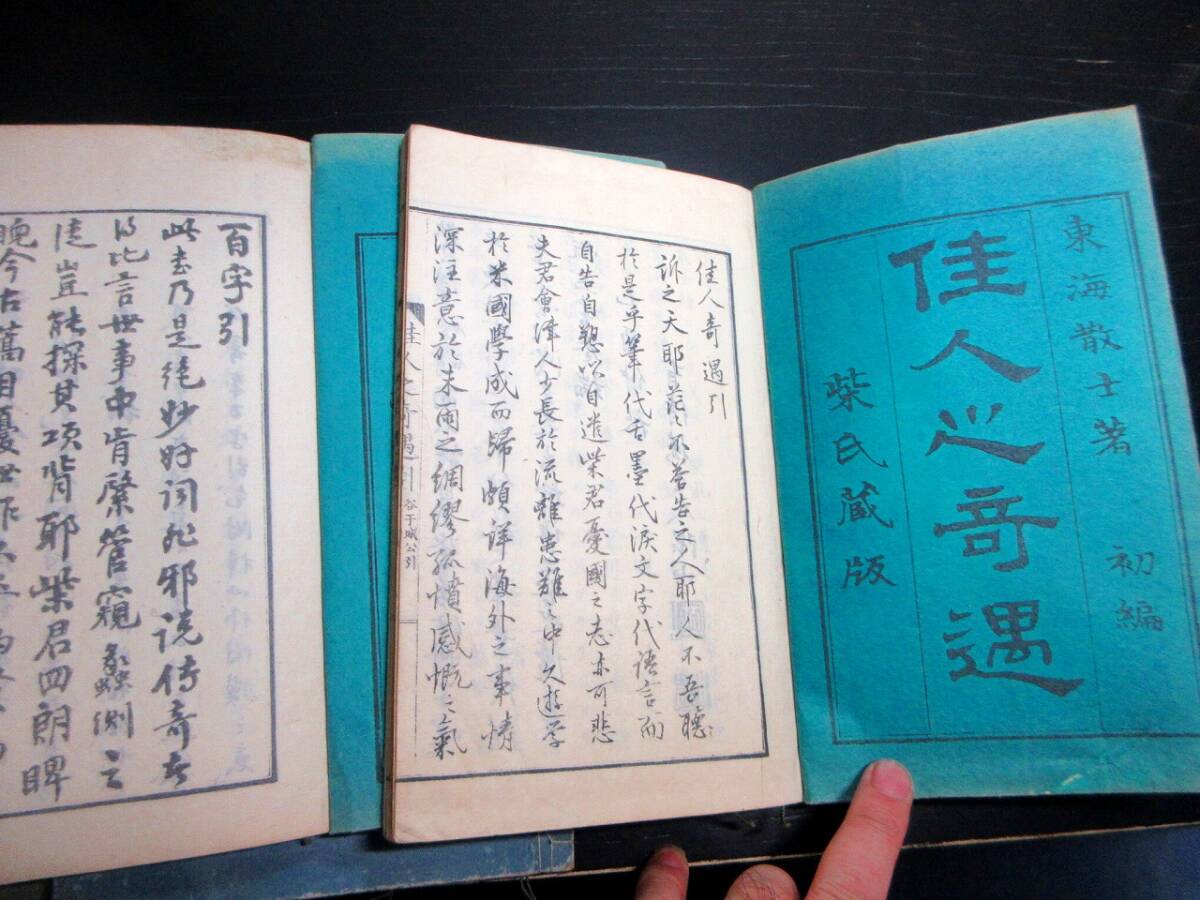 東海散士著 初編
佳人之奇遇
柴氏蔵版
佳人奇遇引
訴之天耶茫々不答告之人耶人不吾聽
於是乎筆代舌墨代涙文字代語言而
自告自愬以自遣柴君憂國之志亦可悲
夫君會津人少長於流離患難之中久遊学
於米國學成而歸頗詳海外之事情
深注意於未雨之綢繆孤憤感慨之氣
佳人之奇遇引 谷干城公引
百字引
此書乃是絶妙好詞非邪说傳奇者
之比言世事中肯綮管窺蠡測之
徒豈能探其項背耶柴君四朗睥
睨今古萬目憂世